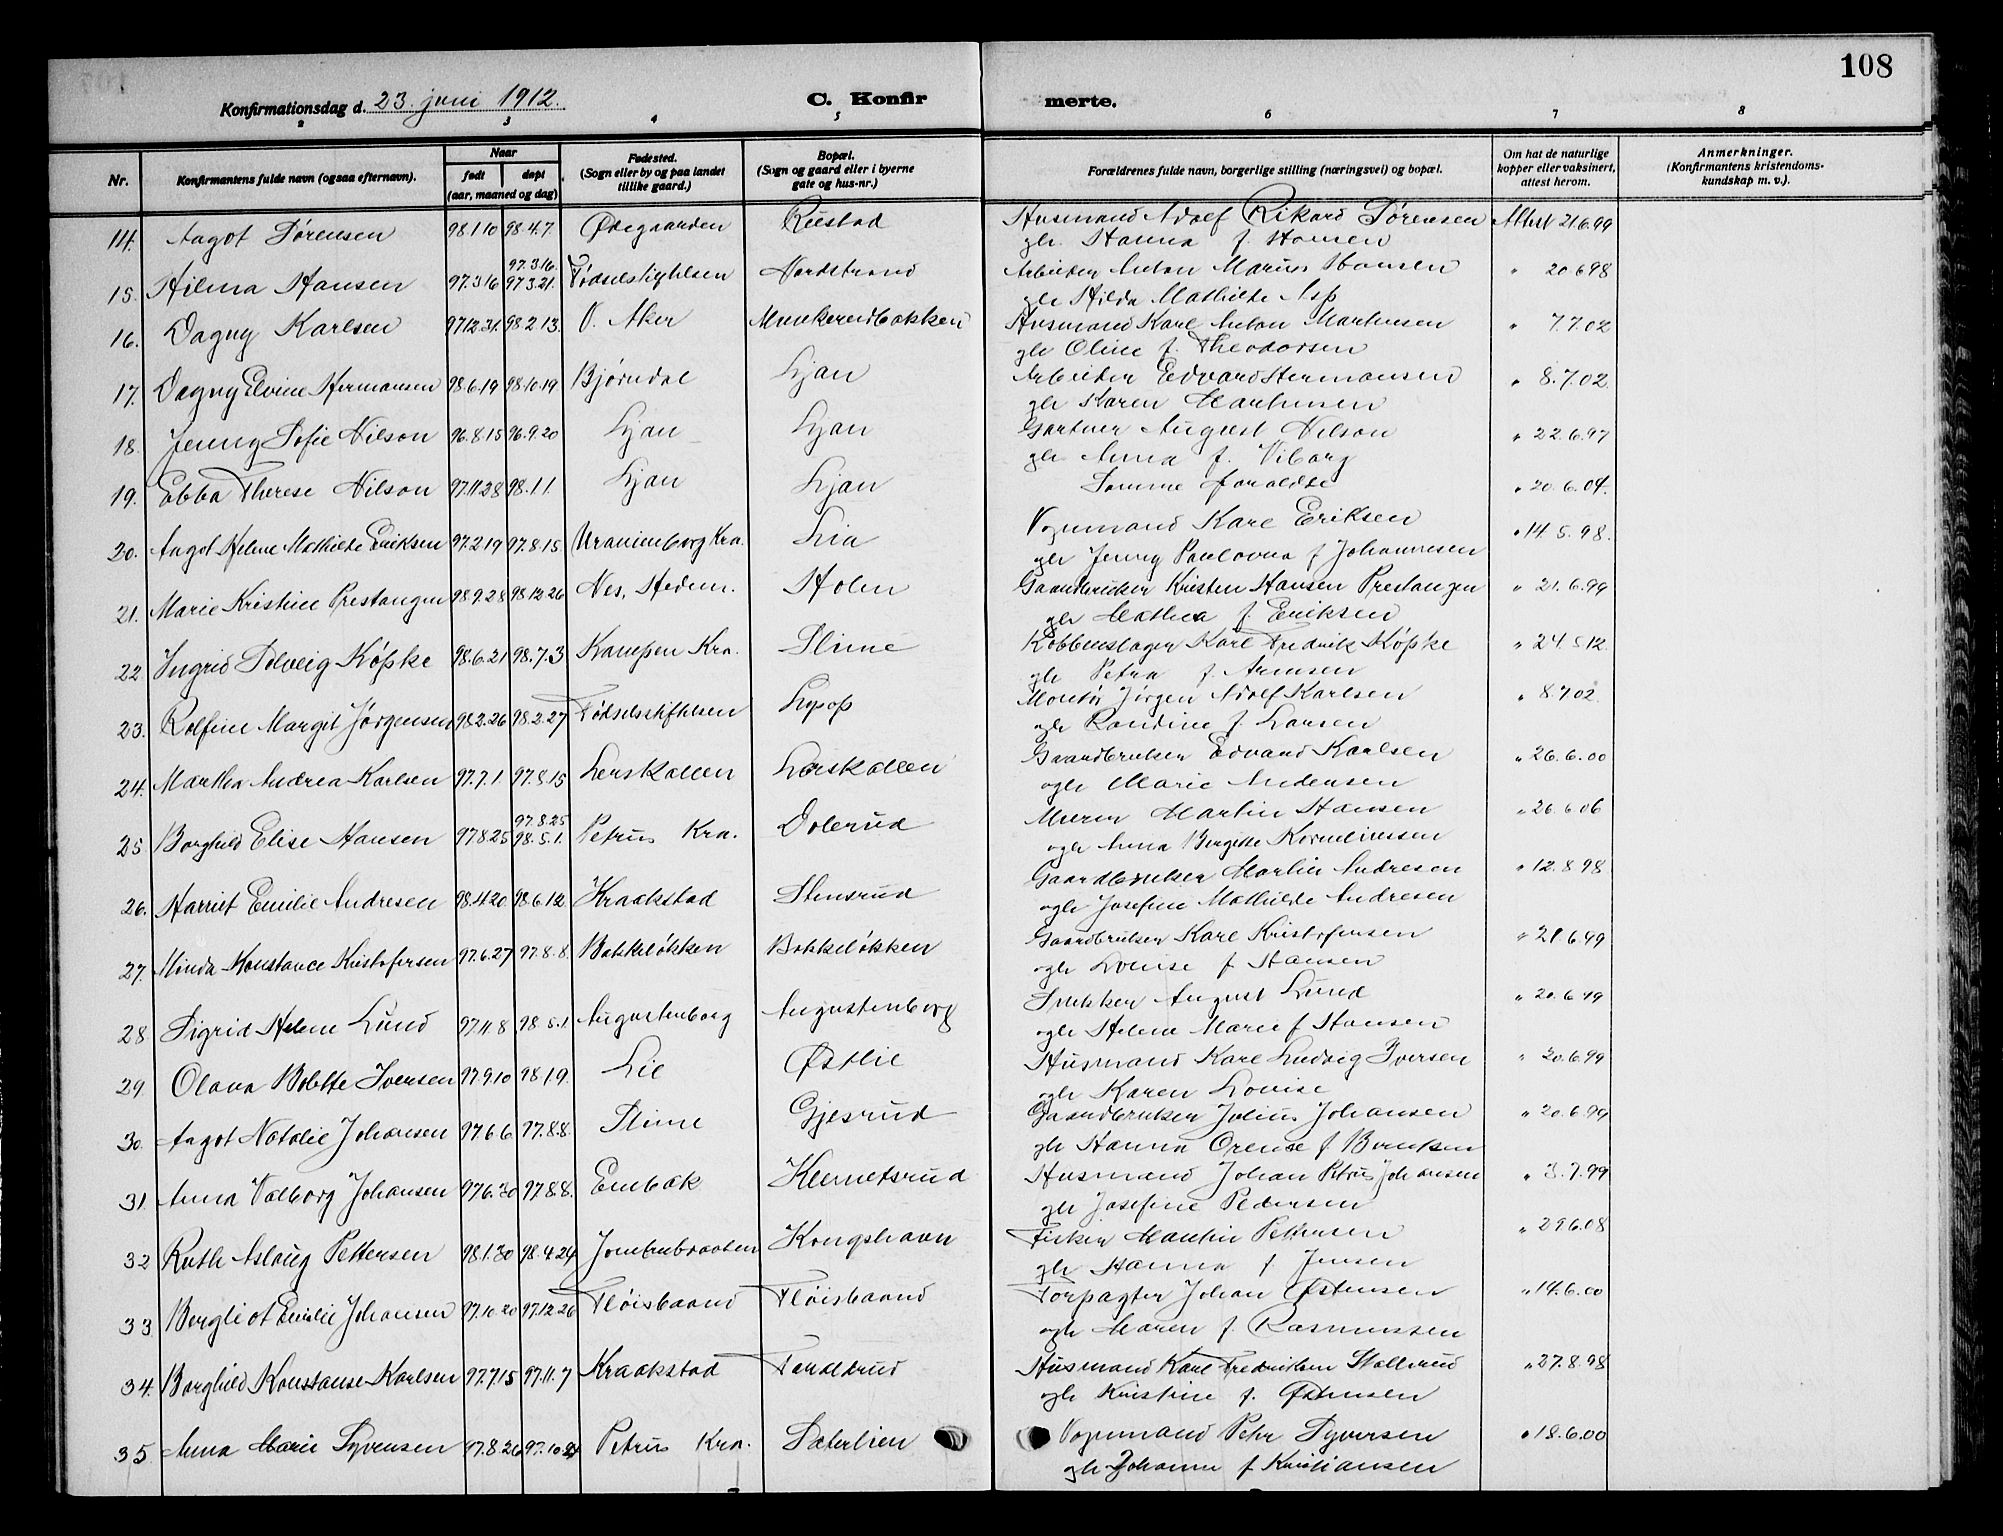 108
Konfirmationsdag d. 23. juni 1912. C. Konfir merte.
2 3 4 5 6 7 8
Nr. Konfirmantens fulde navn (ogsaa efternavn). Naar født døpt (aar, maaned og dag) Fødested. (Sogn eller by og paa landet tillike gaard.) Bopæl. (Sogn og gaard eller i byerne gate og hus-nr.) Forældrenes fulde navn, borgerlige stilling (næringsvei) og bopæl. Om hat de naturlige kopper eller vaksinert, attest herom. Anmerkninger. (Konfirmantens kristendoms-kundskap m. v.).
14. Aagot Sørensen 98.1.10 98.4.7 Ødegaarden Rustad Husmand Adolf Rikard Sørensen Attest 21.6.99
gh. Hanna f. Hansen
97.3.16.
15. Hilma Hansen 97.3.16 97.3.21. Fødselsstiftelsen Nordstrand Arbeider Anton Marius Hansen " 20.6.98
gh Hilda Mathilde Asp
16. Dagny Karlsen 97.12.31. 98.2.13. V. Aker Munkerudbakken Husmand Karl Anton Martinsen " 7.7.02
gh Oline f. Theodorsen
17. Dagny Elvine Hermansen 98.6.19 98.10.19 Bjørndal Ljan Arbeider Edvard Hermansen " 8.7.02.
gh Karen Martinsen
18. Jenny Sofie Nilson 96.8.15 96.9.20 Ljan Ljan Gartner August Nilson " 22.6.97
gh Anna f. Viborg
19. Ebba Therese Nilson 97.11.28 98.1.1. Ljan Ljan Samme foraldre " 20.6.04.
20. Aagot Helene Mathilde Eriksen 97.2.19 97.8.15 Uranienborg Kra. Lia Vognmand Karl Eriksen " 14.5.98.
gh Jenny Paulovna f Johannesen
21. Marie Kristine Prestangen 98.9.28 98.12.26 Nes, Hedem. Holm Gaardbruker Kristen Hansen Prestangen " 21.6.99
gh Mathea f. Eriksen
22 Ingrid Solveig Köpke 98.6.21 98.7.3 Kampen Kra. Slime Kobberslager Karl Fredrik Köpke " 24.5.12.
gh Petra f. Arnesen
23. Rolfine Margit Jørgensen 98.2.26 98.2.27 Fødselsstiftelsen Lysop Montör Jörgen Adolf Karlsen " 8.7.02.
ogh Randine f. Larsen
24. Martha Andrea Karlsen 97.7.1. 97.8.15 Lerskallen Lerskallen Gaardbruker Edvard Karlsen " 26.6.00
ogh Marie Andersen
97.8.25
25 Borghild Elise Hansen 97.8.25 98.5.1. Petrus Kra. Dolerud Murer Martin Hansen " 26.6.06
ogh Anna Birgitte Korneliussen
26. Harriet Emilie Andresen 98.4.20 98.6.12 Kraakstad Stensrud Gaardbruker Martin Andresen " 12.8.98
ogh Josefine Mathilde Andresen
27. Minda Konstance Kristofersen 97.6.27 97.8.8. Bakkeløkken Bakkeløkken Gaardbruker Karl Kristofersen " 21.6.99
ogh Lovise f Hansen
28. Sigrid Helene Lund 97.11.8 98.5.1. Augustenborg Augustenborg Snekker August Lund " 20.6.99
ogh Helene Marie f Hansen
29. Olava Bolette Iversen 97.9.10 98.1.9. Lie Østlie Husmand Karl Ludvig Iversen " 20.6.99
ogh Karen Lovise
30. Aagot Natalie Johansen 97.6.6. 97.8.8. Slime Gjesrud Gaardbruker Julius Johansen " 20.6.99
gh Hanna
31. Anna Valborg Johansen 97.6.30 97.8.8. Enebak Klemetsrud Husmand Johan Petrus Johansen " 3.7.99
gh Josefine Pedersen
32 Ruth Aslaug Pettersen 98.1.30 98.4.24 Jomfrubraaten Kongshavn Fisker Martin Pettersen " 29.6.08
gh Hanna f. Jensen
33 Bergliot Emilie Johansen 97.10.20 97.12.26 Fløisbaand Fløisbaand Forpagter Johan Østensen " 14.6.00
ogh Maren f. Rasmussen
34. Borghild Konstanse Karlsen 97.7.15 97.11.7 Kraakstad Taraldrud Husmand Karl Fredriksen " 27.8.98
ogh Kristine f. Østensen
35 Anna Marie Syversen 97.8.26 97.10.24 Petrus Kra. Sæterlien Vognmand Peter Syversen " 18.6.00
ogh Johanne f Kristiansen